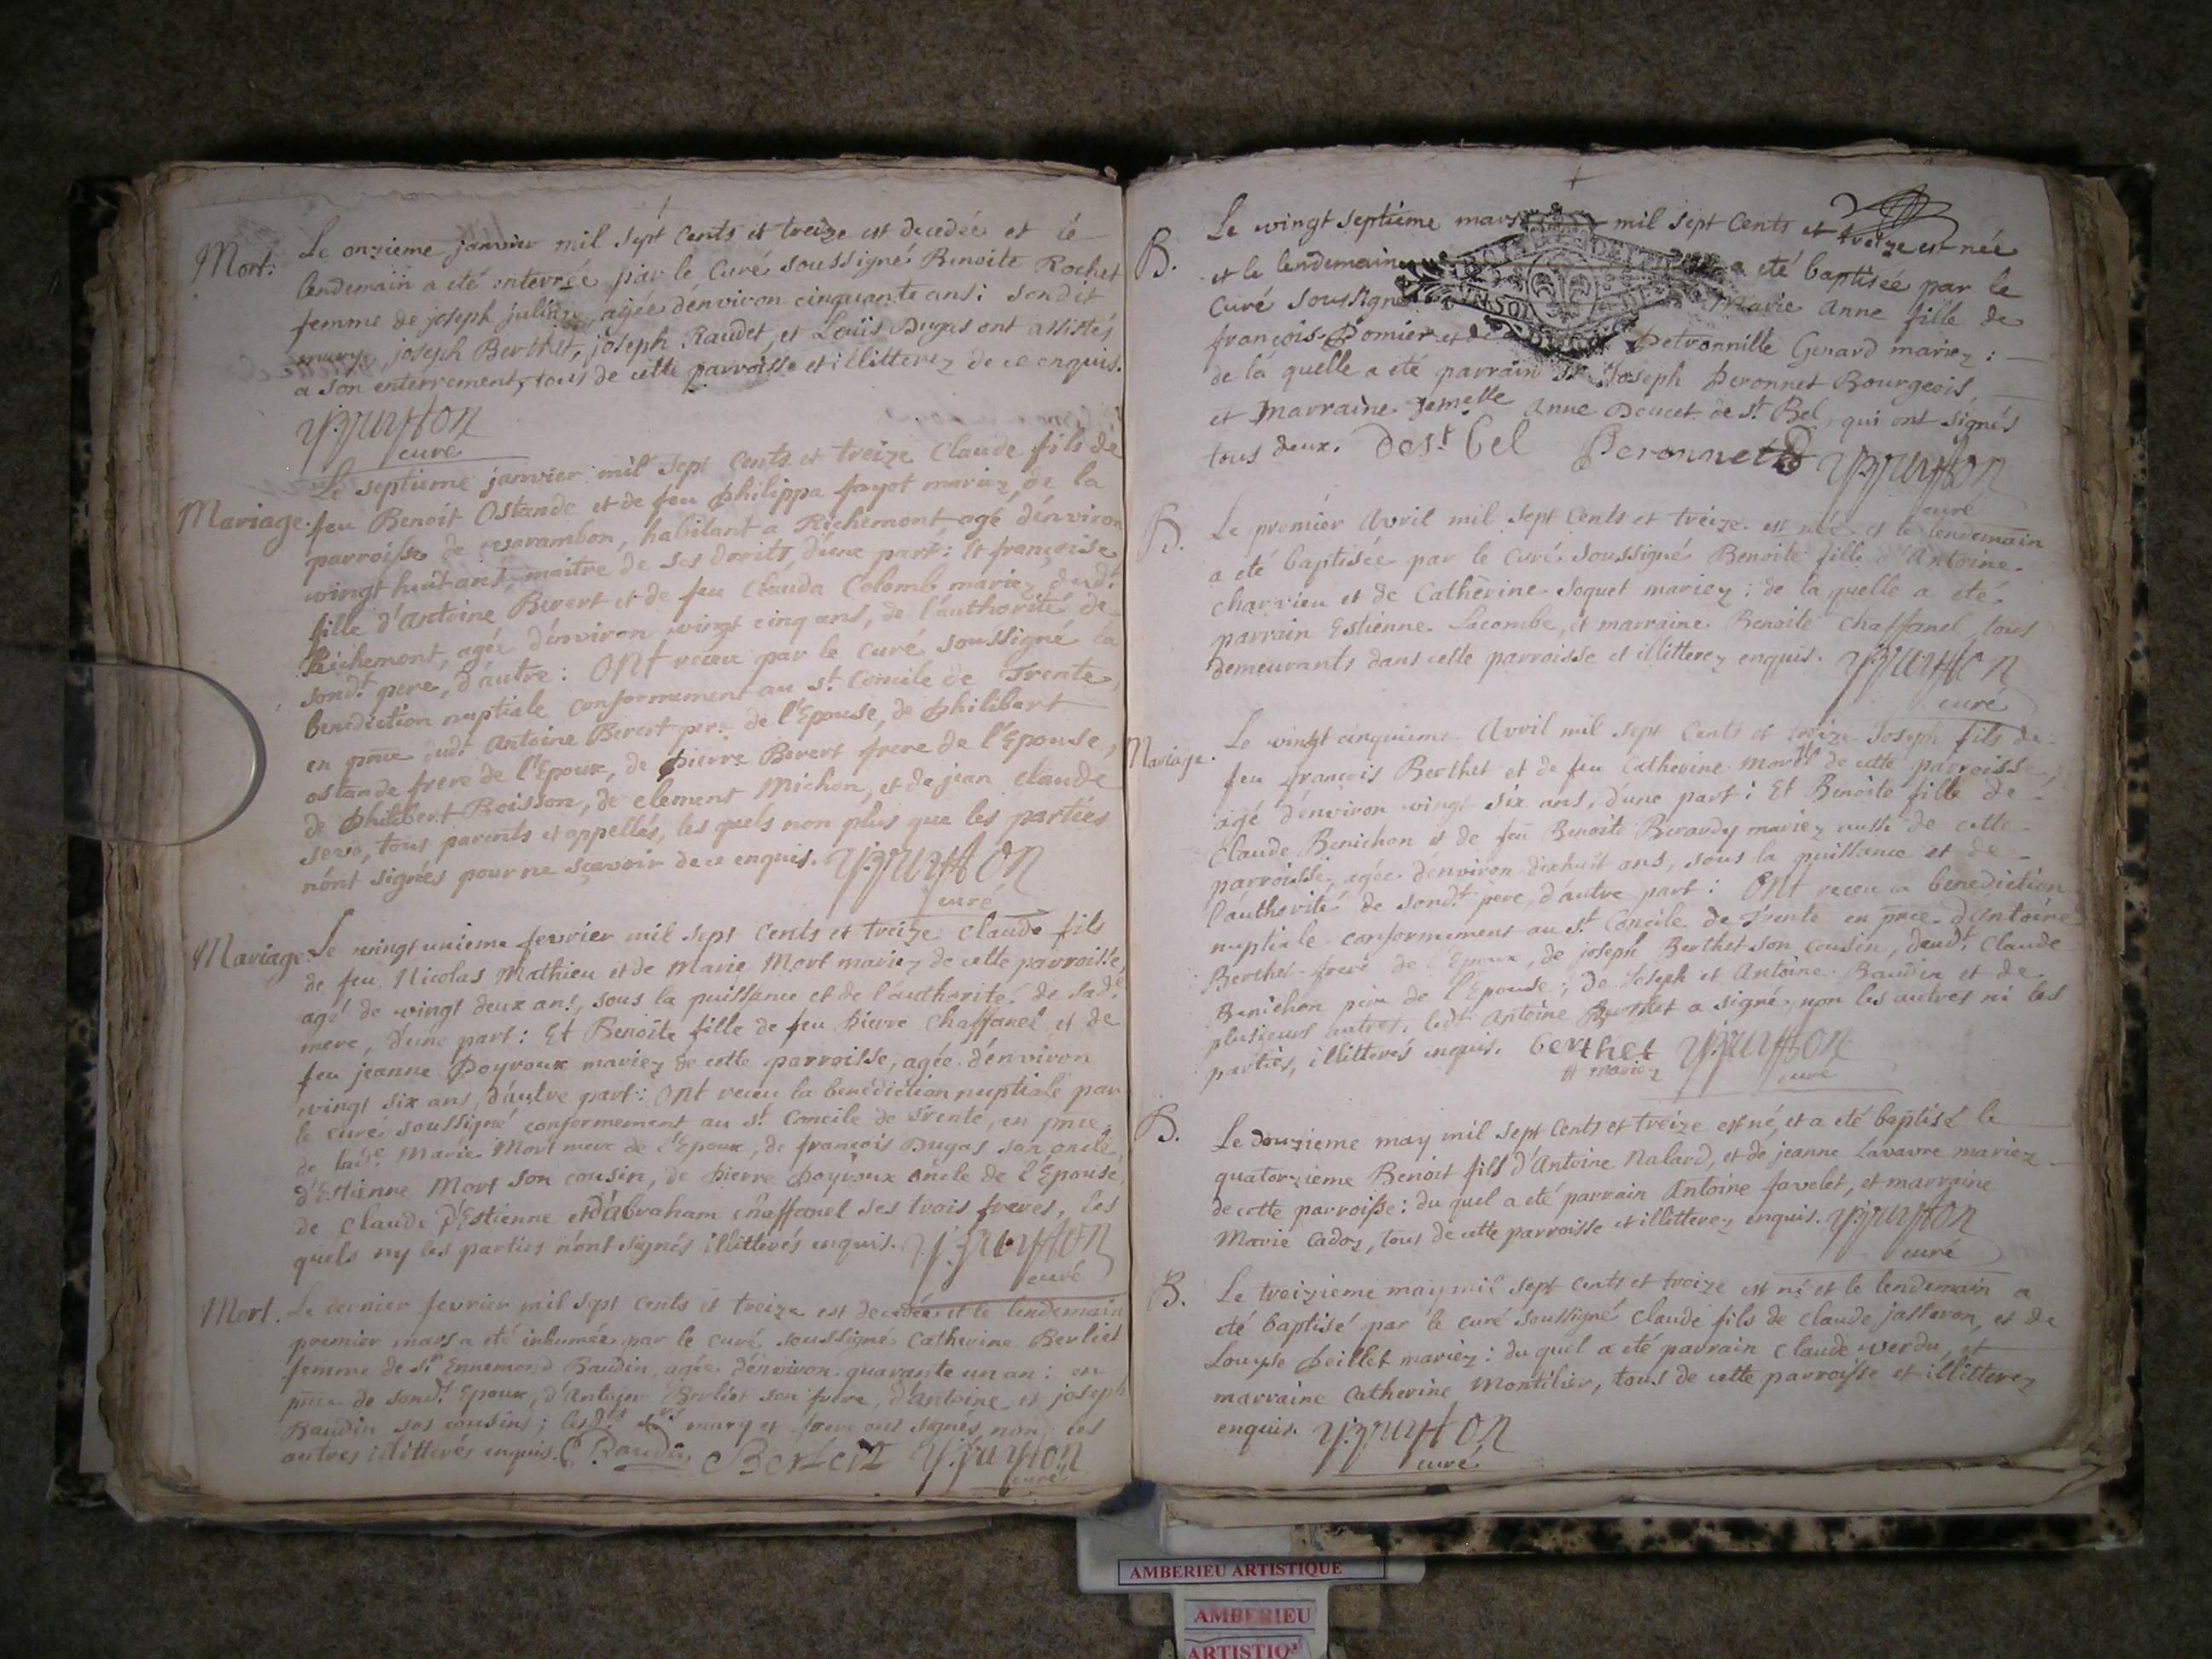 Mort. Le onzieme janvier mil sept cents et treize est decedée et le
lendemain a eté enterrée par le Curé soussigné Benoite Rochet
femme de joseph julian, agée d'environ cinquante ans: sondit
mary, joseph Berthet, joseph Raudet, et Loüis Dugas ont assistés
a son enterrement, tous de cette parroisse et illitterez de ce enquis.
curé
Mariage. Le septieme janvier mil sept cents et treize Claude fils de
feu Benoit Ostande et de feu philippa fayot mariez, de la
parroisse de varambon, habitant a Richemont agé d'environ
vingt huit ans, maitre de ses droits, d'une part: Et françoise
fille d'Antoine Berert et de feu Clauda Colomb mariez, dudt
Richemont, agée d'environ vingt cinq ans, de l'authorité de
sondt pere, d'autre: Ont receu par le curé soussigné la
benediction nuptiale conformement au st Concile de Trente,
en pnce dudt Antoine Berert pere de l'Epouse, de philibert
ostande frere de l'Epoux, de pierre Berert frere de l'Epouse,
de philibert Boisson, de clement Michon, et de jean claude
servo, tous parents et appellés, les quels non plus que les parties
n'ont signés pour ne sçavoir de ce enquis.
curé
Mariage. Le vingt unieme fevrier mil sept cents et treize claude fils
de feu Nicolas Mathieu et de Marie Mort mariez de cette parroisse,
agé de vingt deux ans, sous la puissance et de l'authorité de sade
mere, d'une part: Et Benoite fille de feu pierre Chaffanel et de
feu jeanne Poyroux mariez de cette parroisse, agée d'environ
vingt six ans, d'autre part: Ont receu la benediction nuptiale par
le curé soussigné conformement au st Concile de Trente, en pnce
de lade Marie Mort mere de l'Epoux, de françois Dugas son oncle,
d'Estienne Mort son cousin, de pierre Poyroux oncle de l'Epouse,
de claude d'Estienne et d'abraham chaffanel ses trois freres, les
quels ny les parties n'ont signés illitterés enquis.
curé
Mort. Le dernier fevrier mil sept cents et treize est decedée et le lendemain
premier mars a eté inhumée par le curé soussigné Catherine Berliet
femme de sr Ennemond Baudin, agée d'environ quarante un an: en
pnce de sondt Epoux, d'Antoine Berliet son frere, d'Antoine et joseph
Baudin ses cousins; lesdts mary et frere ont signés, non les
autres illitterés enquis. Baudin Berliet
curé
B. Le vingt septieme mars mil sept cents et treize est née
et le lendemain a eté baptisée par le
Curé soussigné Marie anne fille de
françois Pomier et de petronnille Genard mariez:
de la quelle a eté parrain Sr joseph Peronnet Bourgeois,
et marraine demelle anne Doucet de st Bel, qui ont signés
tous deux. de st bel Peronnet
curé
B. Le premier Avril mil sept cents et treize est née et le lendemain
a eté baptisée par le curé soussigné Benoite fille d'Antoine
charvieu et de Catherine soquet mariez: de la quelle a eté
parrain Estienne Lacombe, et marraine Benoite chaffanel, tous
demeurants dans cette parroisse et illitterez enquis.
curé
Mariage. Le vingt cinquieme Avril mil sept cents et treize Joseph fils de
feu françois Berthet et de feu Catherine Morel de cette parroisse,
agé d'environ vingt six ans, d'une part: Et Benoite fille de
claude Benichon et de feu Benoite Berardy mariez aussi de cette
parroisse, agée d'environ dixhuit ans, sous la puissance et de
l'authorité de sondt pere, d'autre part: Ont receu la benediction
nuptiale conformement au st Concile de Trente en pnce d'Antoine
Berthet frere de l'Epoux, de joseph Berthet son cousin, dudt Claude
Benichon pere de l'Epouse; de Joseph et Antoine Baudin et de
plusieurs autres. ledt Antoine Berthet a signé, non les autres ni les
parties, illitterés enquis. berthet
mariez
curé
B. Le douzieme may mil sept cents et treize est né, et a eté baptisé le
quatorzieme Benoit fils d'Antoine Nalard, et de jeanne Lavavre mariez
de cette parroisse: du quel a eté parrain Antoine favelet, et marraine
Marie Cadoz, tous de cette parroisse et illitterez enquis.
curé
B. Le treizieme may mil sept cents et treize est né et le lendemain a
eté baptisé par le curé soussigné Claude fils de Claude jasseron, et de
Louyse peillet mariez: du quel a eté parrain claude verdu, et
marraine Catherine Montilier, tous de cette parroisse et illitterez
enquis.
curé
AMBERIEU ARTISTIQUE
AMBERIEU
ARTISTIQ